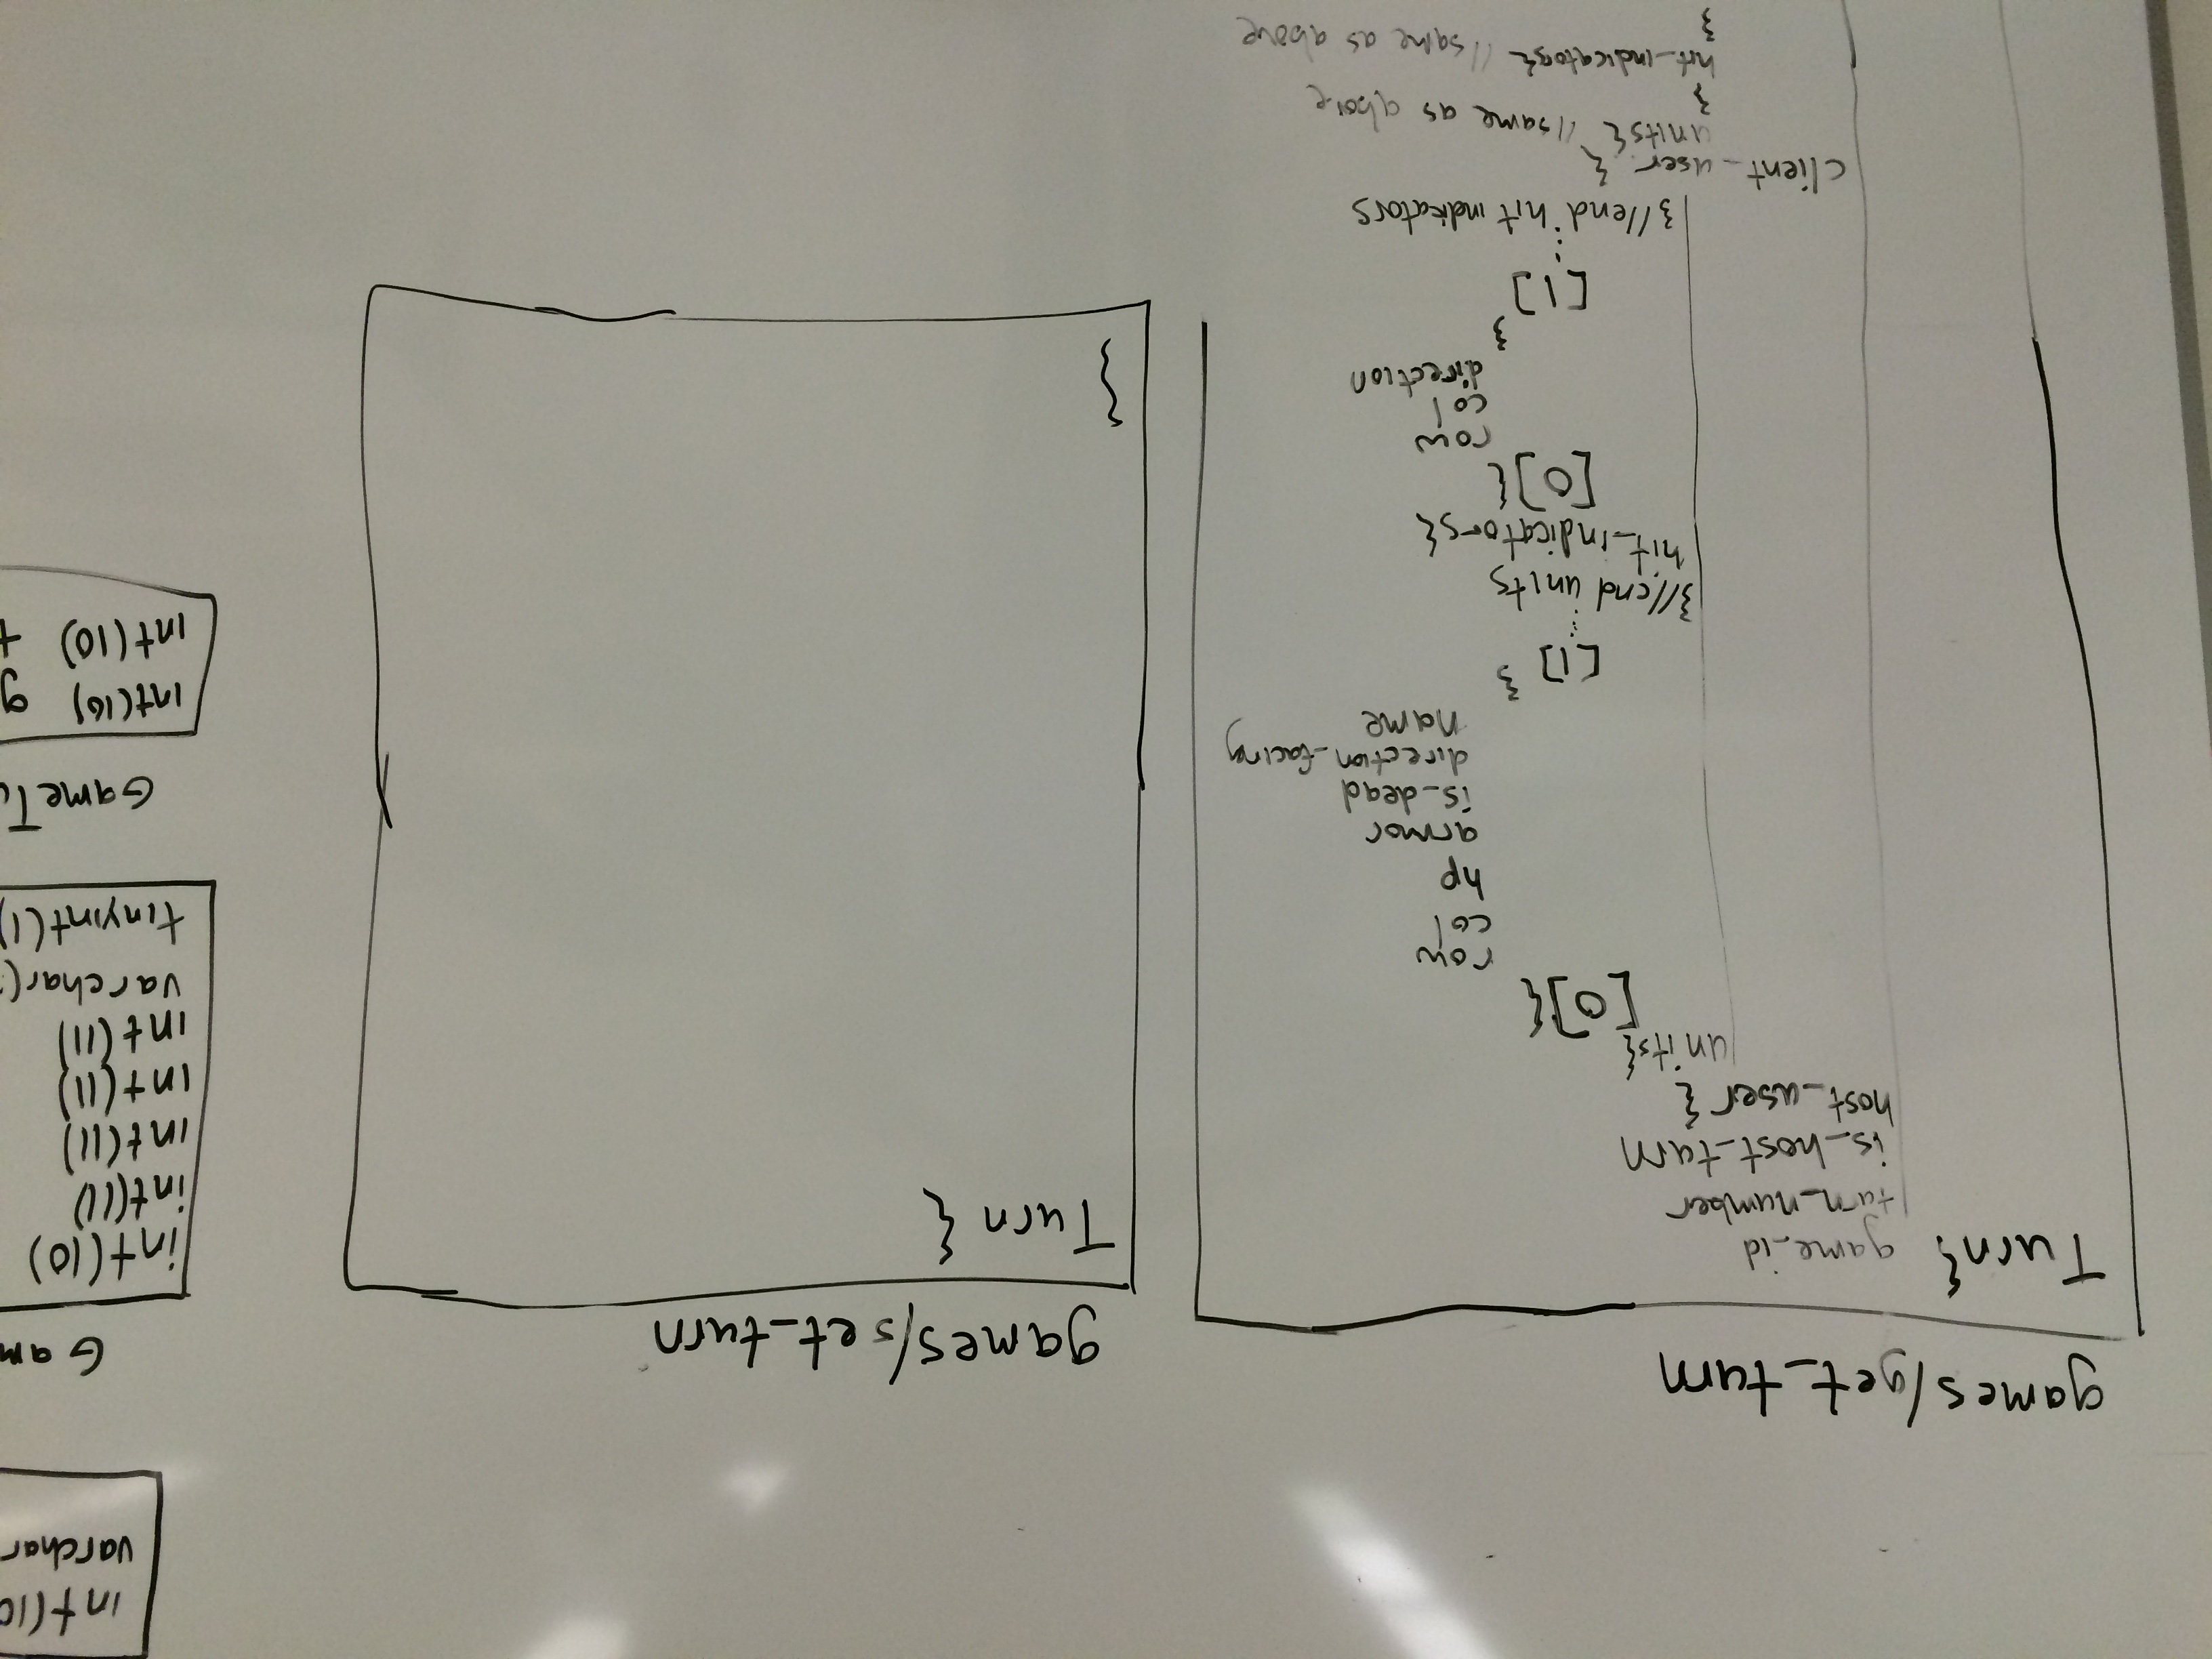 games/get_turn
Turn{ game_id
turn_number
is_host_turn
host_user {
units{
[0]{
row
col
hp
armor
is_dead
direction_facing
name
}
[1]
⋮
}//end units
hit_indicators{
[0]{
row
col
direction
}
[1]
⋮
}//end hit indicators
client_user {
units{ //same as above
}
hit_indicators{ //same as above
}
games/set_turn
Turn {
}
int(10
varchar
Gam
int(10)
int(11)
int(11)
int(11)
int(11)
varchar(
tinyint(1)
GameTu
int(10) g
int(10) t